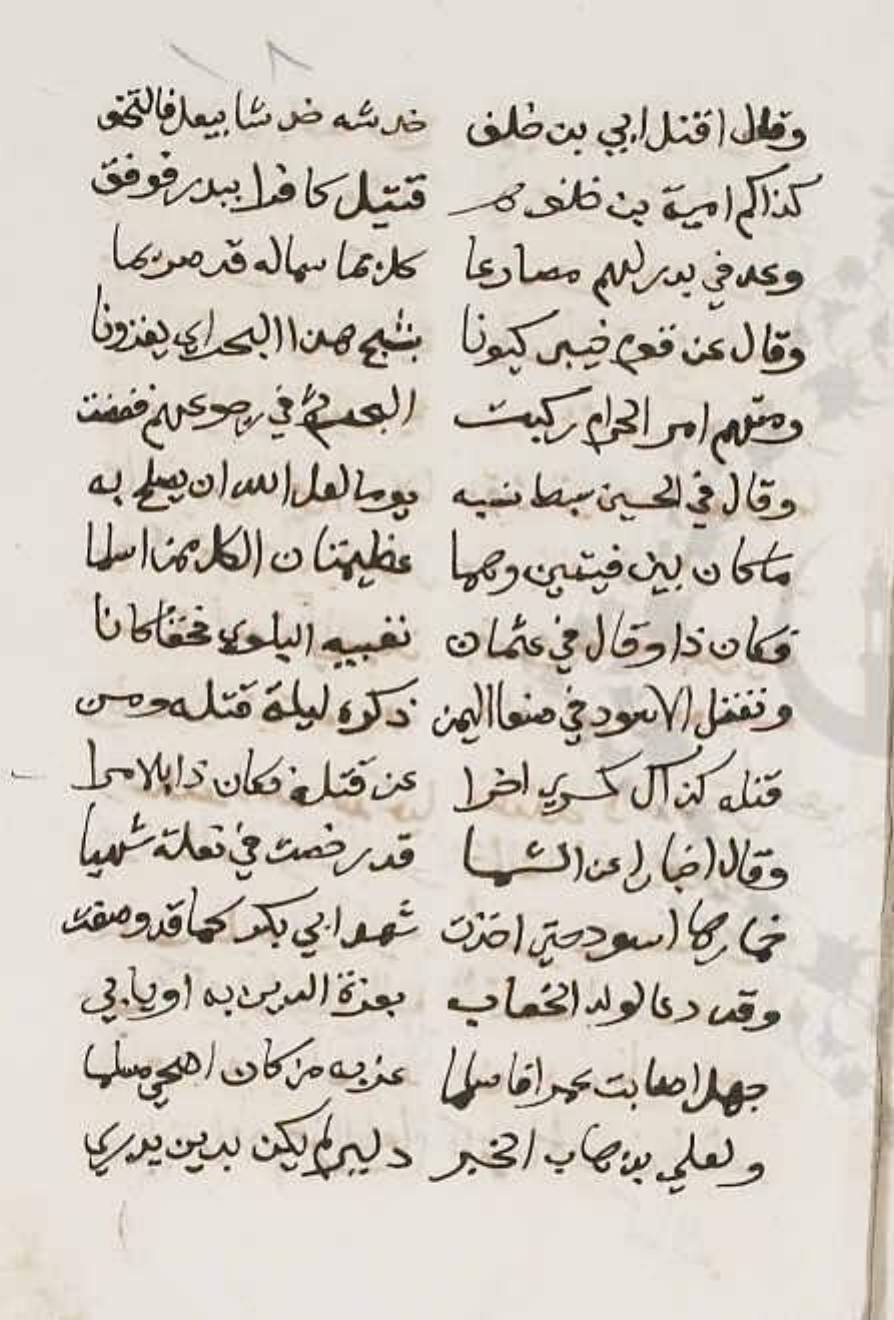 وقال اقتل ابي بن خلف خدشه خدشا بيعل فالتحق
كذاكم امية بن خلف قتيل كافرا ببدر فوفق
وعد في بدر لهم مصارعا كل بما سماله قد صرعا
وقال عن قوم خيبر كبونا بثبج هذا البحر اي يغزونا
ومنهم ام الحرام ركبت البحر في رجوعهم فقضت
وقال في الحسن سبط نسبه يوما لعل الله ان يصلح به
ما كان بين فيتين وهما عظيمتان الكل ممن اسلما
فكان ذا وقال في عثمان تصيبه البلوى فحقا كانا
ونقتل الاسود في صنعا اليمن ذكره ليلة قتله ومن
قتله كذاك كسرى اخرا عن قتله فكان ذا بلا مرا
وقال اخبارا عن الشيما قد رفعت في بغلة شهبا
خمارها اسود حتى اخذت شهد ابي بكر كما قد وصفت
وقد دعا لولد الخطاب بعزة الدين به او بابي
جهل اصابت عمرا فاسلما عز به من كان اضحى مسلما
ولعلي بذهاب الحر والبر لم يكن بدين يدري